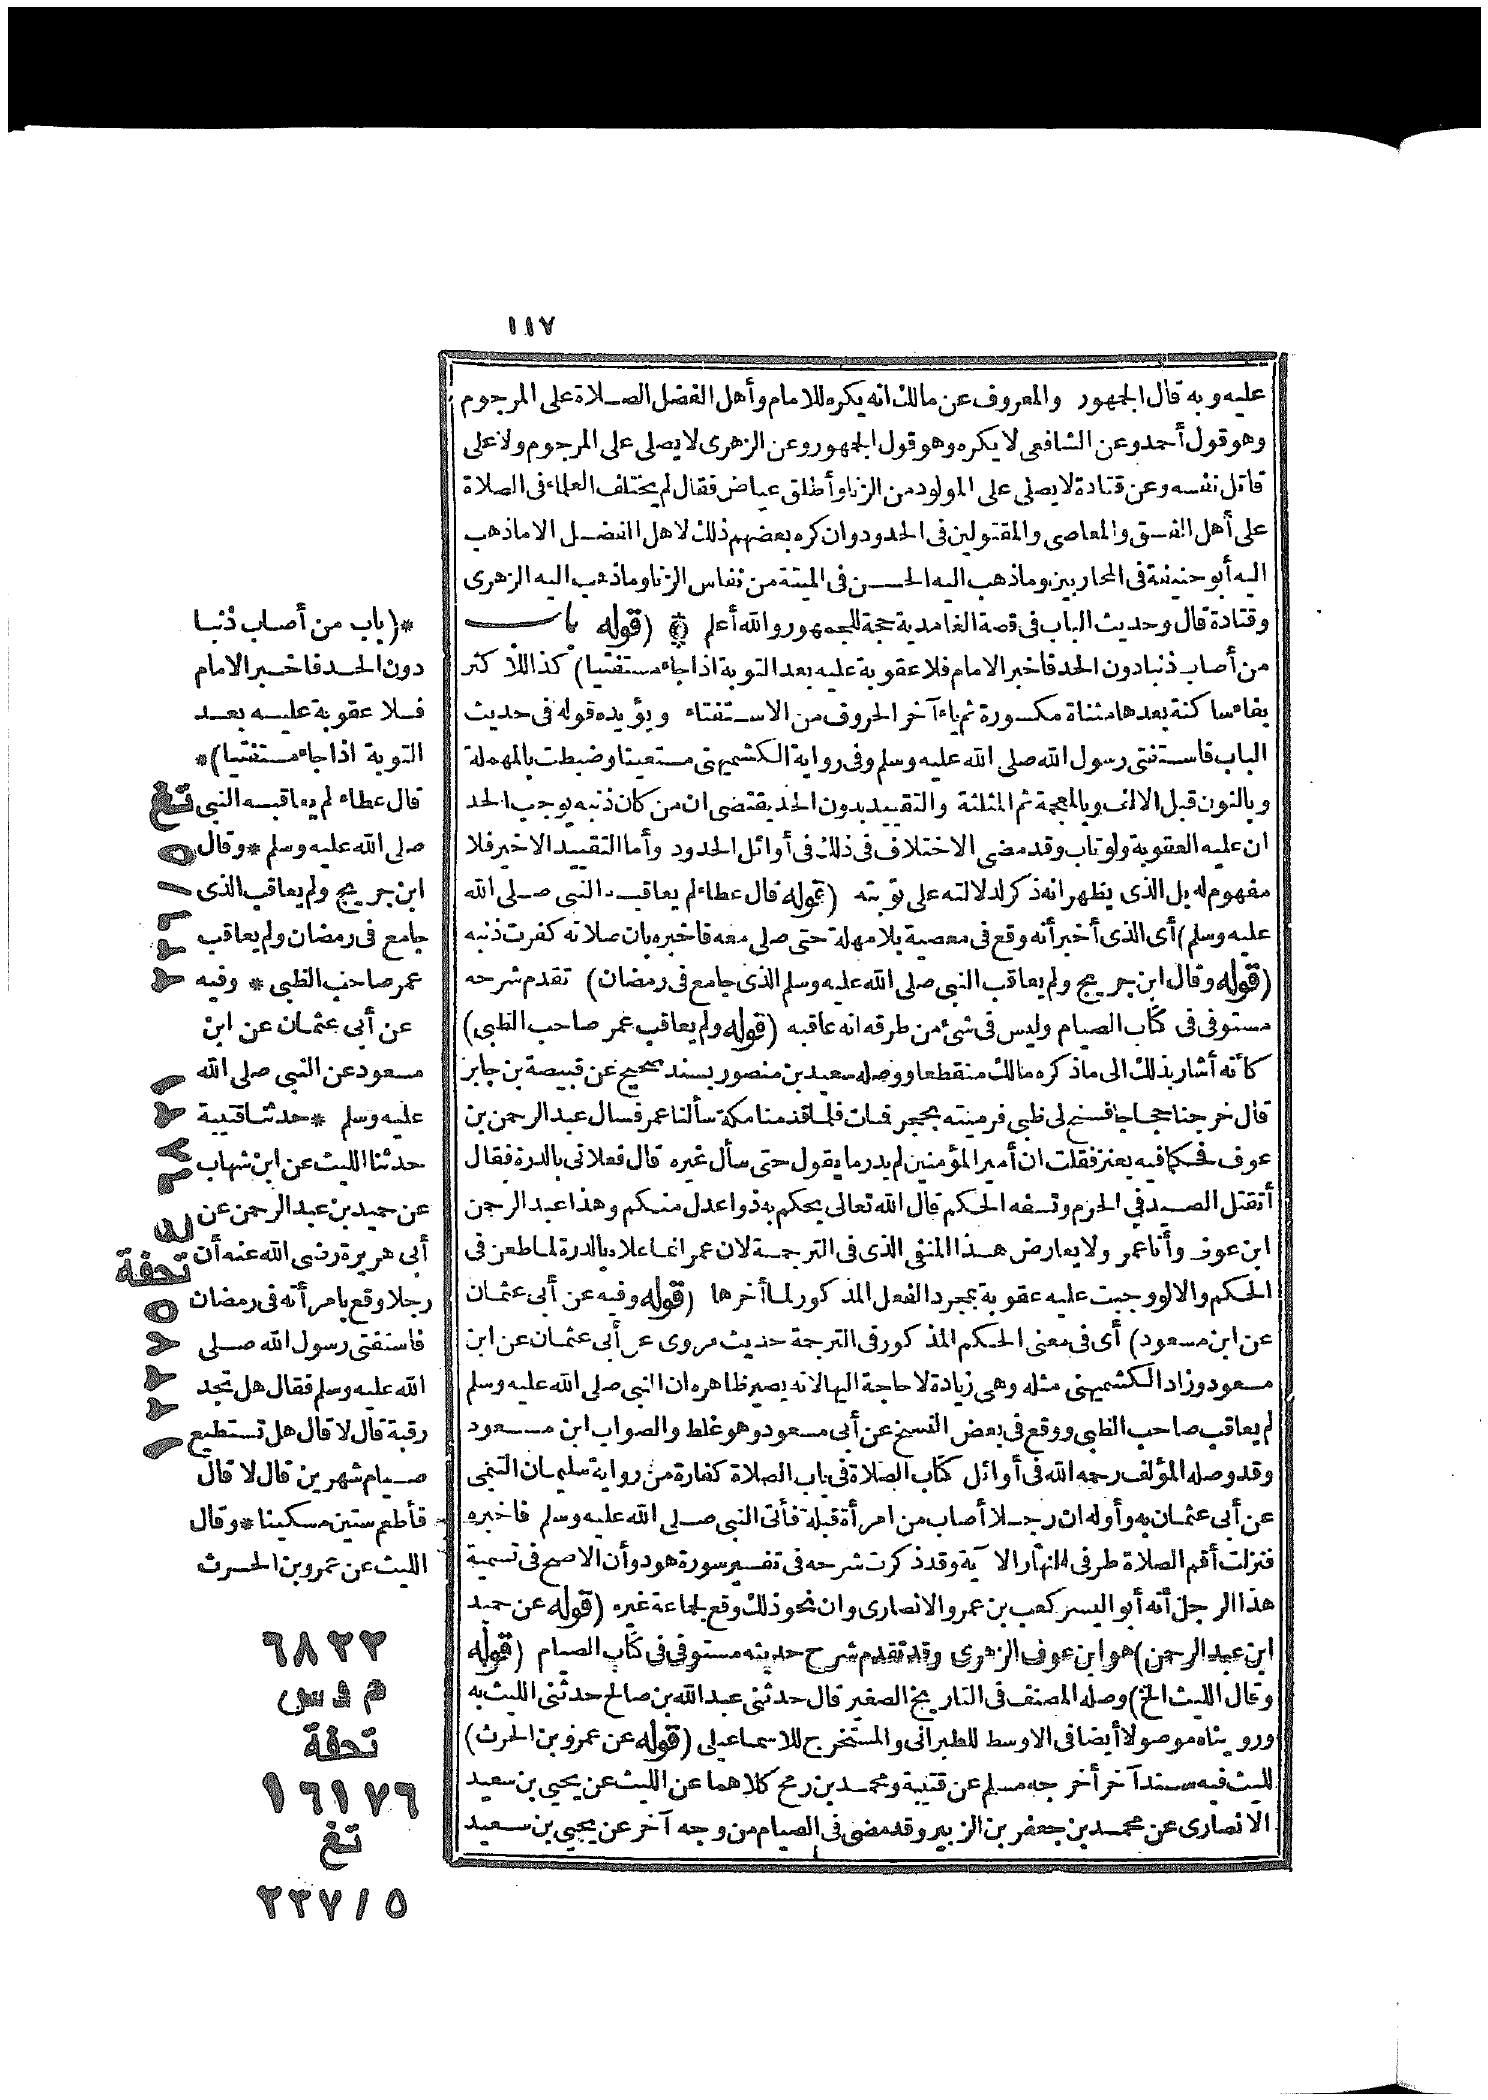 ١١٧
عليه وبه قال الجمهور والمعروف عن مالك انه يكره للامام وأهل الفضل الصلاة على المرجوم
وهو قول أحمد وعن الشافعى لا يكره وهو قول الجمهور وعن الزهرى لا يصلى على المرجوم ولا على
قاتل نفسه وعن قتادة لا يصلى على المولود من الزنا وأطلق عياض فقال لم يختلف العلماء فى الصلاة
على أهل الفسق والمعاصى والمقتولين فى الحدود وان كره بعضهم ذلك لاهل الفضل الا ما ذهب
اليه أبو حنيفة فى المحاربين وما ذهب اليه الحسن فى الميتة من نفاس الزنا وما ذهب اليه الزهرى
وقتادة قال وحديث الباب فى قصة الغامدية حجة للجمهور والله أعلم (قوله باب
من أصاب ذنبا دون الحد فاخبر الامام فلا عقوبة عليه بعد التوبة اذا جاء مستفتيا) كذا للأكثر
بفاء ساكنة بعدها مثناة مكسورة ثم ياء آخر الحروف من الاستفتاء ويؤيده قوله فى حديث
الباب فاستفتى رسول الله صلى الله عليه وسلم وفى رواية الكشميهنى مستعينا وضبطت بالمهملة
وبالنون قبل الالف وبالمعجمة ثم المثلثة والتقييد بدون الحد يقتضى ان من كان ذنبه يوجب الحد
ان عليه العقوبة ولو تاب وقد مضى الاختلاف فى ذلك فى أوائل الحدود وأما التقييد الاخير فلا
مفهوم له بل الذى يظهر انه ذكر لدلالته على توبته (قوله قال عطاء لم يعاقبه النبى صلى الله
عليه وسلم) أى الذى أخبر أنه وقع فى معصية بلا مهلة حتى صلى معه فاخبره بان صلاته كفرت ذنبه
(قوله وقال ابن جريج ولم يعاقب النبى صلى الله عليه وسلم الذى جامع فى رمضان) تقدم شرحه
مستوفى فى كتاب الصيام وليس فى شئ من طرقه انه عاقبه (قوله ولم يعاقب عمر صاحب الظبى)
كأنه أشار بذلك الى ما ذكره مالك منقطعا ووصله سعيد بن منصور بسند صحيح عن قبيصة بن جابر
قال خرجنا حجاجا فسنح لى ظبى فرميته بحجر فمات فلما قدمنا مكة سألنا عمر فسال عبد الرحمن بن
عوف فحكما فيه بعنز فقلت ان أمير المؤمنين لم يدر ما يقول حتى سأل غيره قال فعلانى بالدرة فقال
أتقتل الصيد فى الحرم وتسفه الحكم قال الله تعالى يحكم به ذوا عدل منكم وهذا عبد الرحمن
ابن عوف وأنا عمر ولا يعارض هذا المنفى الذى فى الترجمة لان عمر انما علاه بالدرة لما طعن فى
الحكم والا لو وجبت عليه عقوبة بمجرد الفعل المذكور لما أخرها (قوله وفيه عن أبى عثمان
عن ابن مسعود) أى فى معنى الحكم المذكور فى الترجمة حديث مروى عن أبى عثمان عن ابن
مسعود وزاد الكشميهنى مثله وهى زيادة لا حاجة اليها لانه يصير ظاهره ان النبى صلى الله عليه وسلم
لم يعاقب صاحب الظبى ووقع فى بعض النسخ عن أبى مسعود وهو غلط والصواب ابن مسعود
وقد وصله المؤلف رحمه الله فى أوائل كتاب الصلاة فى باب الصلاة كفارة من رواية سليمان التيمى
عن أبى عثمان به وأوله ان رجلا أصاب من امرأة قبلة فأتى النبى صلى الله عليه وسلم فاخبره
فنزلت أقم الصلاة طرفى النهار الآية وقد ذكرت شرحه فى تفسير سورة هود وأن الاصح فى تسمية
هذا الرجل أنه أبو اليسر كعب بن عمرو الانصارى وان نحو ذلك وقع لجماعة غيره (قوله عن حميد
ابن عبد الرحمن) هو ابن عوف الزهرى وقد تقدم شرح حديثه مستوفى فى كتاب الصيام (قوله
وقال الليث الخ) وصله المصنف فى التاريخ الصغير قال حدثنى عبد الله بن صالح حدثنى الليث به
ورويناه موصولا أيضا فى الاوسط للطبرانى والمستخرج للاسماعيلى (قوله عن عمرو بن الحرث)
لليث فيه سند آخر أخرجه مسلم عن قتيبة ومحمد بن رمح كلاهما عن الليث عن يحيى بن سعيد
الانصارى عن محمد بن جعفر بن الزبير وقد مضى فى الصيام من وجه آخر عن يحيى بن سعيد
*(باب من أصاب ذنبا
دون الحد فاخبر الامام
فلا عقوبة عليه بعد
التوبة اذا جاء مستفتيا)*
قال عطاء لم يعاقبه النبى
صلى الله عليه وسلم *وقال
ابن جريج ولم يعاقب الذى
جامع فى رمضان ولم يعاقب
عمر صاحب الظبى * وفيه
عن أبى عثمان عن ابن
مسعود عن النبى صلى الله
عليه وسلم *حدثنا قتيبة
حدثنا الليث عن ابن شهاب
عن حميد بن عبد الرحمن عن
أبى هريرة رضى الله عنه أن
رجلا وقع بامرأته فى رمضان
فاستفتى رسول الله صلى
الله عليه وسلم فقال هل تجد
رقبة قال لا قال هل تستطيع
صيام شهرين قال لا قال
فأطعم ستين مسكينا *وقال
الليث عن عمرو بن الحرث
تغ
تحفة
٦٨٢٢
م د س
تحفة
١٦١٧٦
تغ
٢٣٧/٥